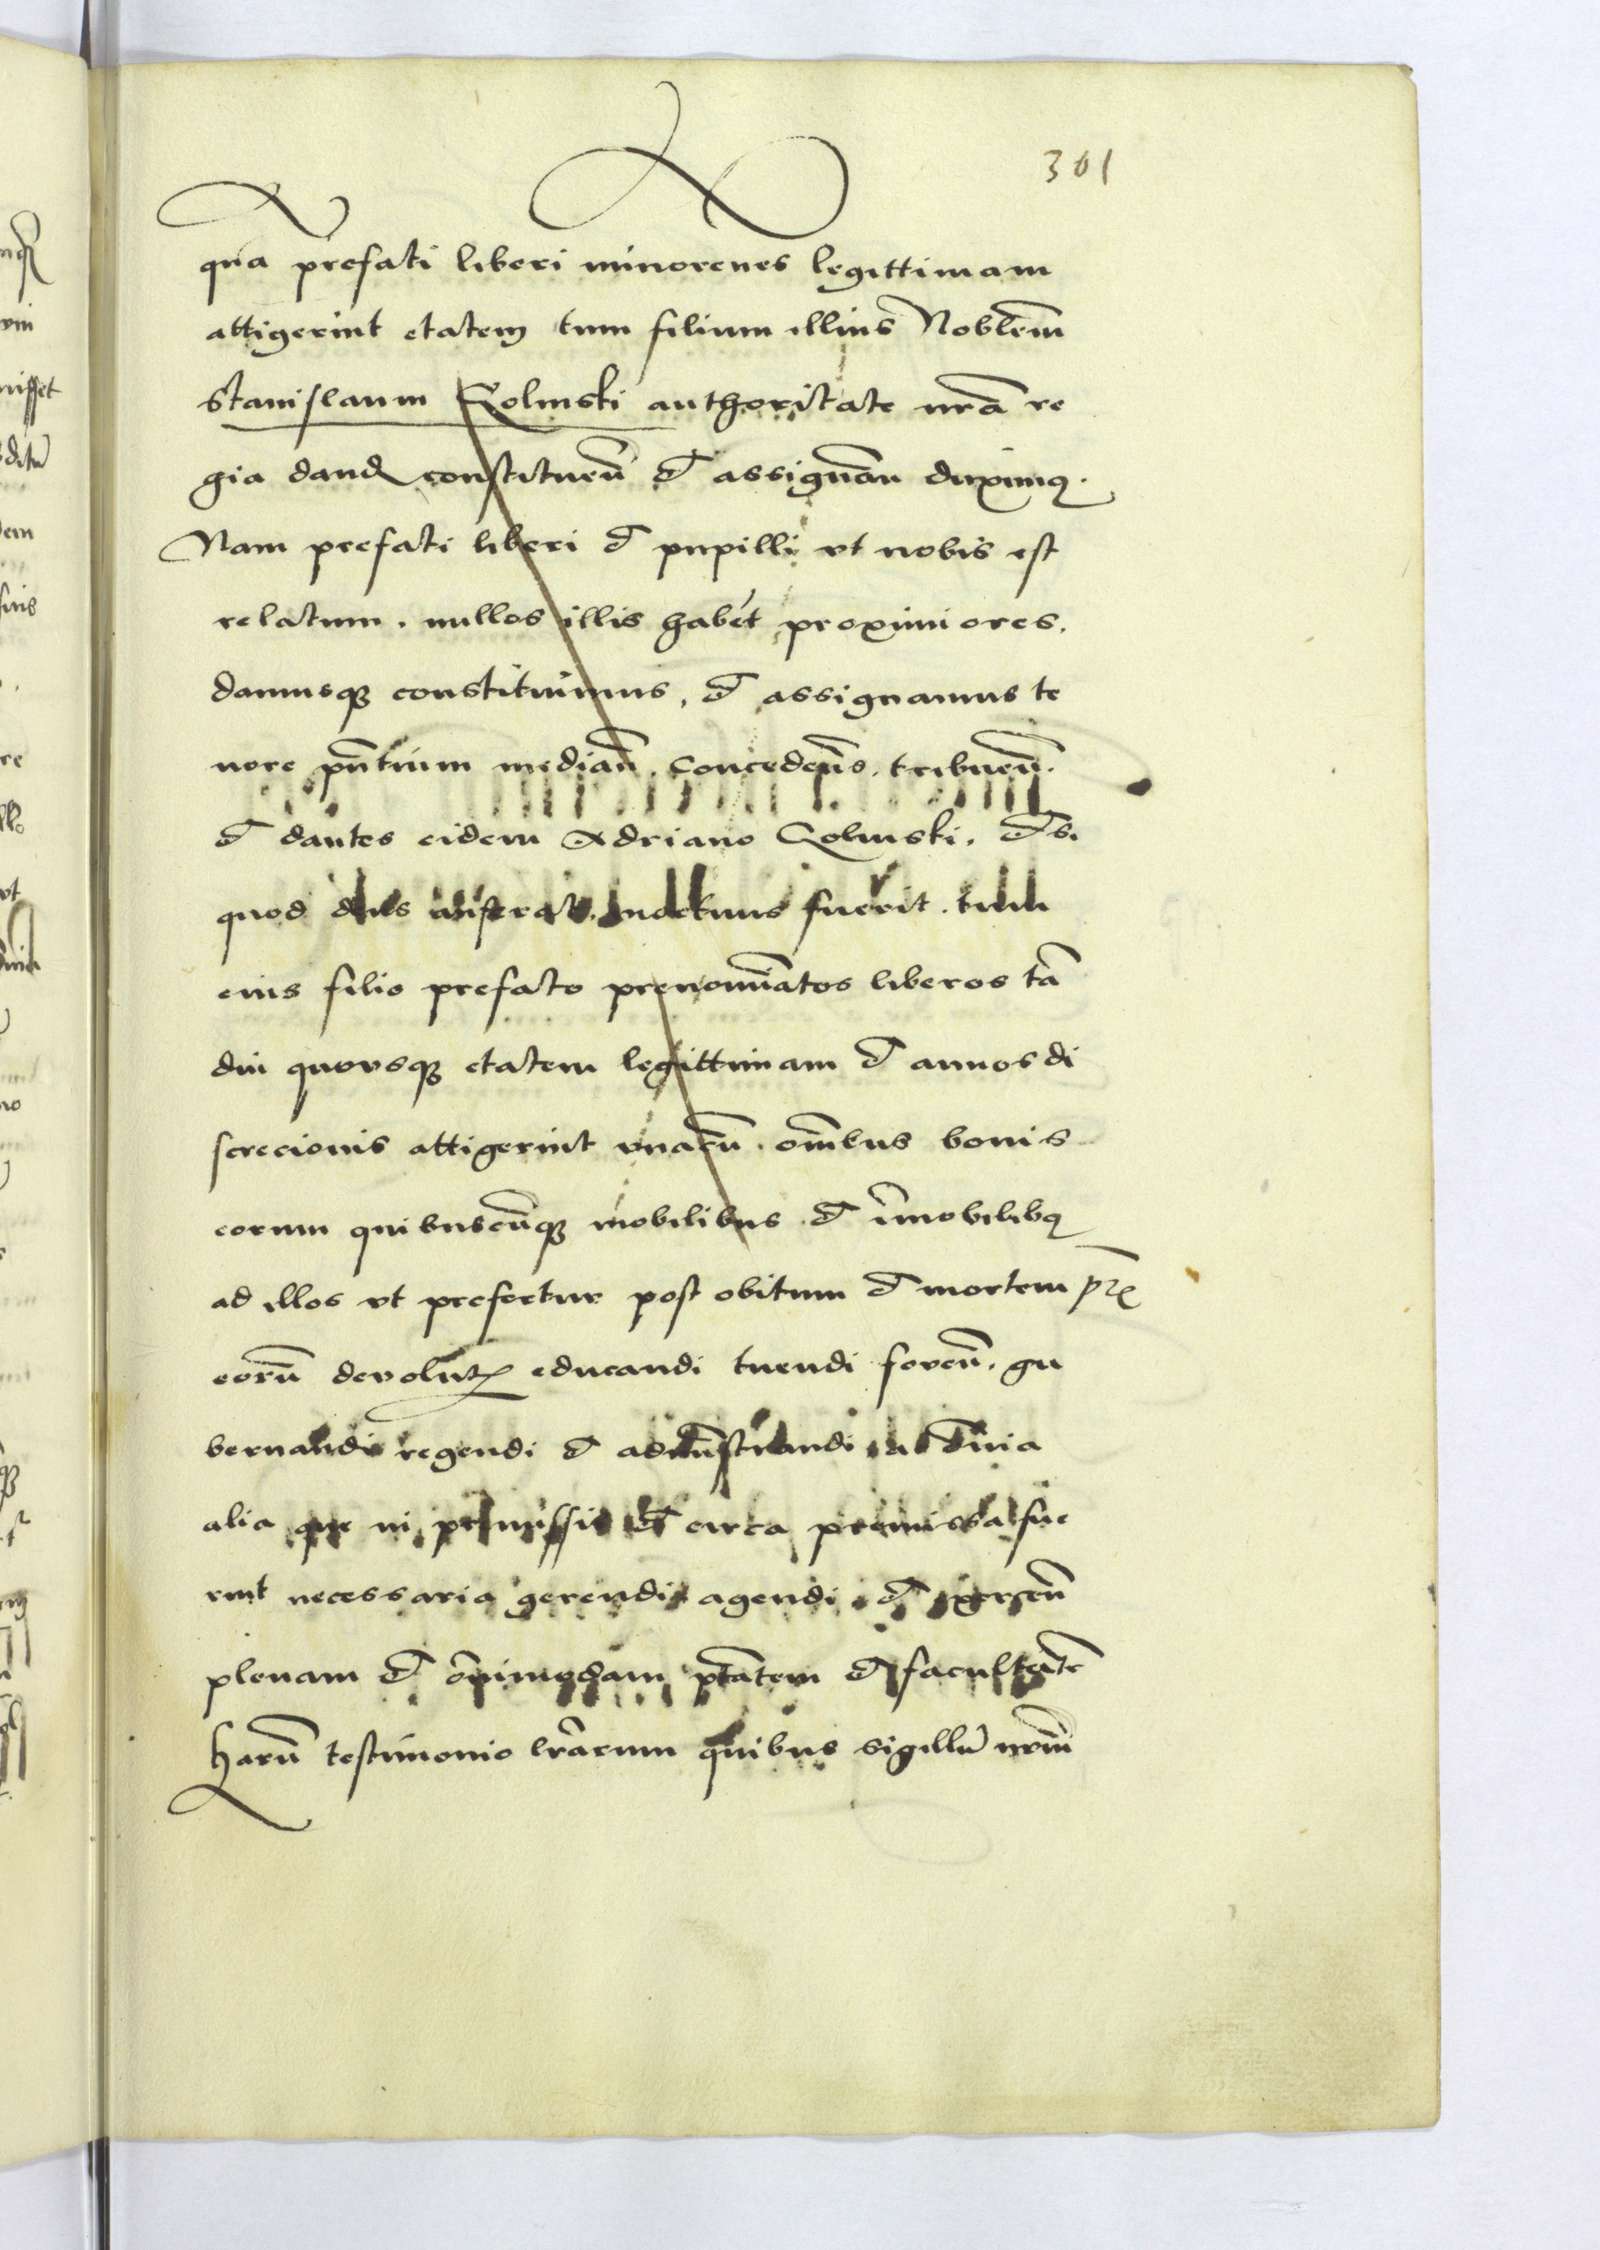 301
qua prefati liberi minorenes legittimam
attigerint etatem tum filium illius Noblem̄
Stanislaum Golinski authoritate nr̄a re
gia dand constituen̄ et assignan̄ duximus.
Nam prefati liberi et pupilli vt nobis est
relatum. nullos illis habēt proximiores.
damusque constituimus. et assignamus te
nore pn̄tium median̄. Concedens̄. tribuen̄.
et dantes eidem Adriano Golinski. et si
quod deus auferat mortuus fuerit. tum
eius filio prefato prenomi̅atos liberos ta̅
diu quousque etatem legittimam et annos di
screcionis attigerint vnacu̅. om̅ibus bonis
eorum quibuscu̅que mobilibus et i̅mobilibus
ad illos vt prefertur post obitum et mortem pr̄is
eoru̅ devolut educandi tuendi foven̄. gu
bernandi regendi et admi̅strandi ac o̅nia
alia que in premissis et circa premissa fue
rint necessaria gerendi agendi et exercen̄
plenam et o̅nimodam pt̅atem et facultate̅
Haru̅ testimonio lr̅arum quibus sigillu̅ nr̅m